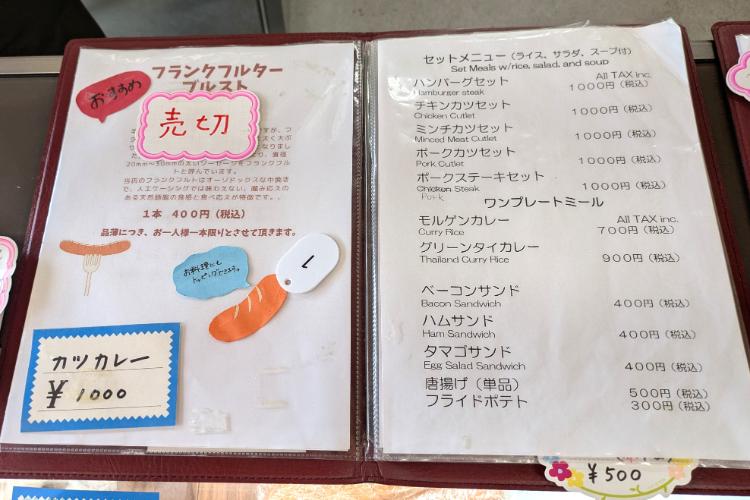 おすすめ
フランクフルター
ブルスト
売切
20mm～30mmの太いソーセージをフランクフルト
と呼んでいます。
当店のフランクフルトはオーソドックスな中挽き
で、人工ケーシングでは味わえない、歯み応えの
ある天然豚腸の食感と食べ応えが特徴です。
1本 400円（税込）
品薄につき、お一人様一本限りとさせて頂きます。
お料理にも
トッピングできるよう。
1
カツカレー
¥ 1000
セットメニュー（ライス、サラダ、スープ付）
Set Meals w/rice, salad, and soup
ハンバーグセット All TAX inc.
Hamburger steak 1000円（税込）
チキンカツセット
Chicken Cutlet 1000円（税込）
ミンチカツセット
Minced Meat Cutlet 1000円（税込）
ポークカツセット
Pork Cutlet 1000円（税込）
ポークステーキセット
Chicken Steak 1000円（税込）
Pork
ワンプレートミール
モルゲンカレー All TAX inc.
Curry Rice 700円（税込）
グリーンタイカレー
Thailand Curry Rice 900円（税込）
ベーコンサンド
Bacon Sandwich 400円（税込）
ハムサンド
Ham Sandwich 400円（税込）
タマゴサンド
Egg Salad Sandwich 400円（税込）
唐揚げ（単品） 500円（税込）
フライドポテト 300円（税込）
¥500